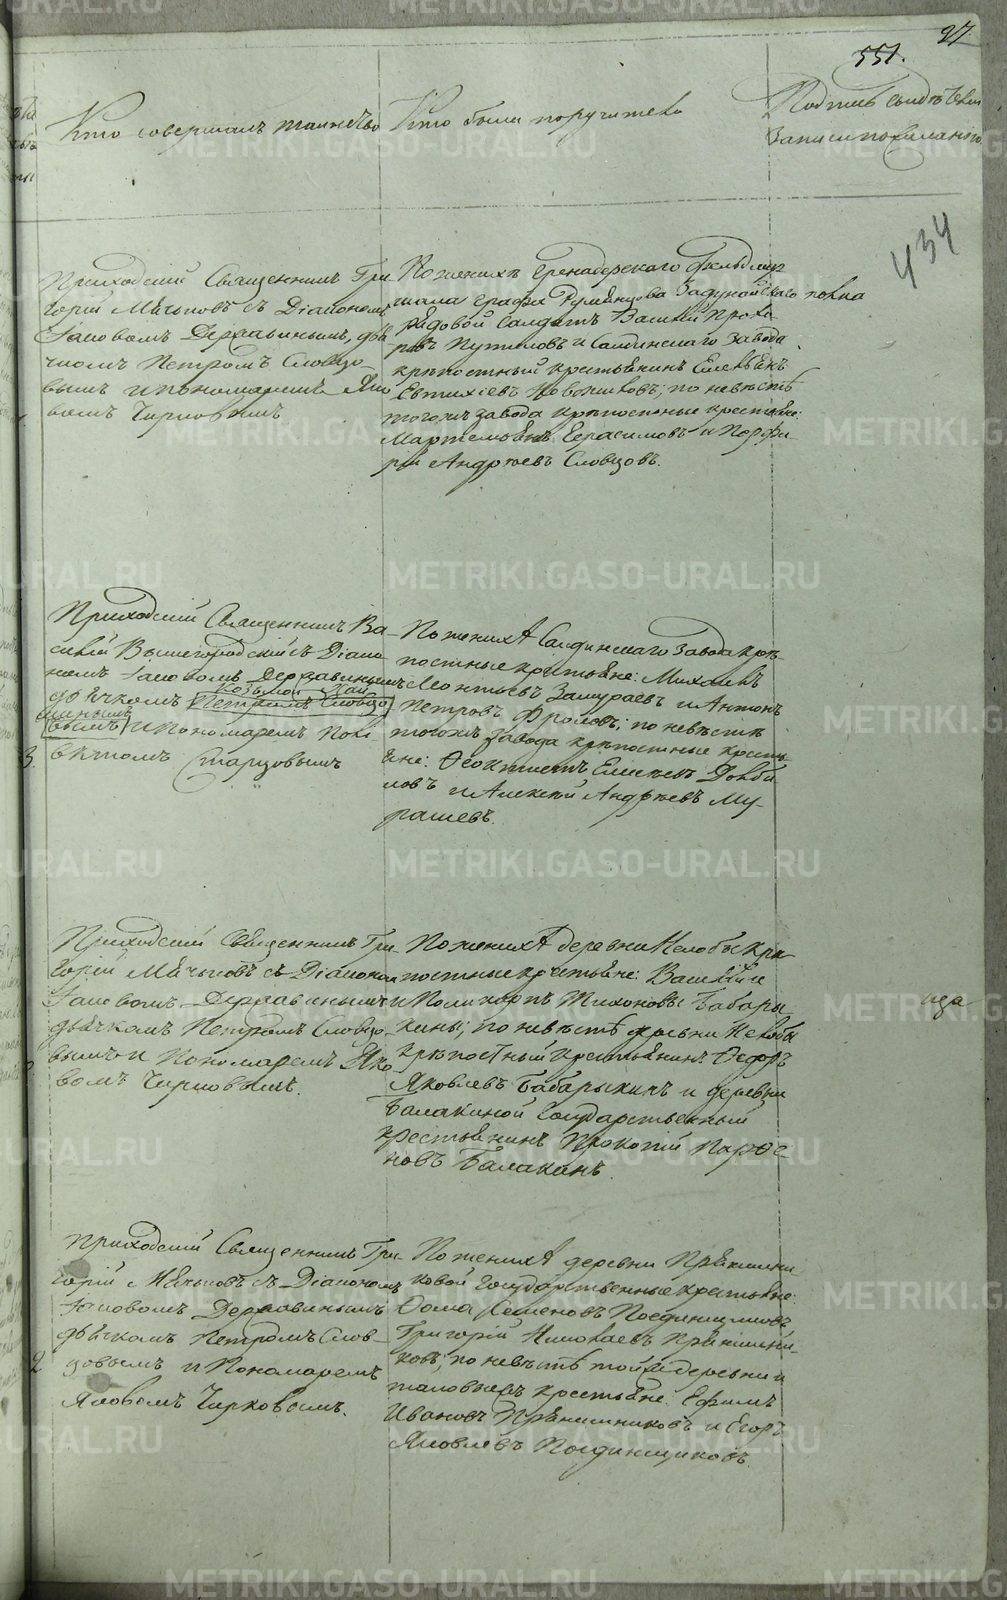 97
551.
Кто совершалъ таинство
Кто были поручители
Подпись свидѣтелей
записи по желанію
434
Приходскій Священникъ Гри-
горій Мячковъ съ Діакономъ
Іаковомъ Державинымъ, дья-
чкомъ Петромъ Словцо-
вымъ и пономаремъ Яко-
вомъ Чирковымъ
По женихѣ Гренадерскаго Фельдмар-
шала графа Румянцова Задунайскаго полка
рядовой Солдатъ Василій Прохо-
ровъ Путиловъ и Салдинскаго завода
крѣпостный крестьянинъ
Евтихіевъ; по невѣстѣ
тогожъ завода крѣпостные крестьяне:
Герасимовъ и Порфи-
рій Андреевъ Словцовъ.
Приходскій Священникъ Ва-
силій Вышегородскій съ Діако-
номъ Іаковомъ Державинымъ
дьячкомъ Козьмой
Петромъ Словцо
вымъ и Пономаремъ
Старцовымъ
3.
По женихѣ Салдинскаго завода крѣ-
постные крестьяне: Михаилъ
Леонтьевъ Замураевъ и Антонъ
Петровъ Фроловъ; по невѣстѣ
тогожъ завода крѣпостные кресть-
яне: Ѳеоктистъ
и Алексѣй Андреевъ Му-
рашевъ.
Приходскій Священникъ Гри-
горій Мячковъ съ Діакономъ
Іаковомъ Державинымъ
дьячкомъ Петромъ Словцо-
вымъ и Пономаремъ Яко-
вомъ Чирковымъ.
По женихѣ деревни Нелобы крѣ-
постные крестьяне: Василій и
Поликарпъ Тихоновы Бабары-
кины; по невѣстѣ деревни Нелобы
крѣпостный крестьянинъ Ѳедоръ
Яковлевъ Бабарыкинъ и деревни
Балакиной Государственный
крестьянинъ Прокопій Парѳе-
новъ Балакинъ.
Приходскій Священникъ Гри-
горій Мячковъ съ Діакономъ
Іаковомъ Державинымъ
дьячкомъ Петромъ Слов-
цовымъ и Пономаремъ
Яковомъ Чирковымъ.
2
По женихѣ деревни Прянични-
ковой Государственные крестьяне:
Ѳома Семеновъ Поединщиковъ
Григорій Николаевъ Пряничн-
ковъ; по невѣстѣ той же деревни и
таковыежъ крестьяне: Ефимъ
Ивановъ Пряничниковъ и Егоръ
Яковлевъ Поединщиковъ.
METRIKI.GASO-URAL.RU